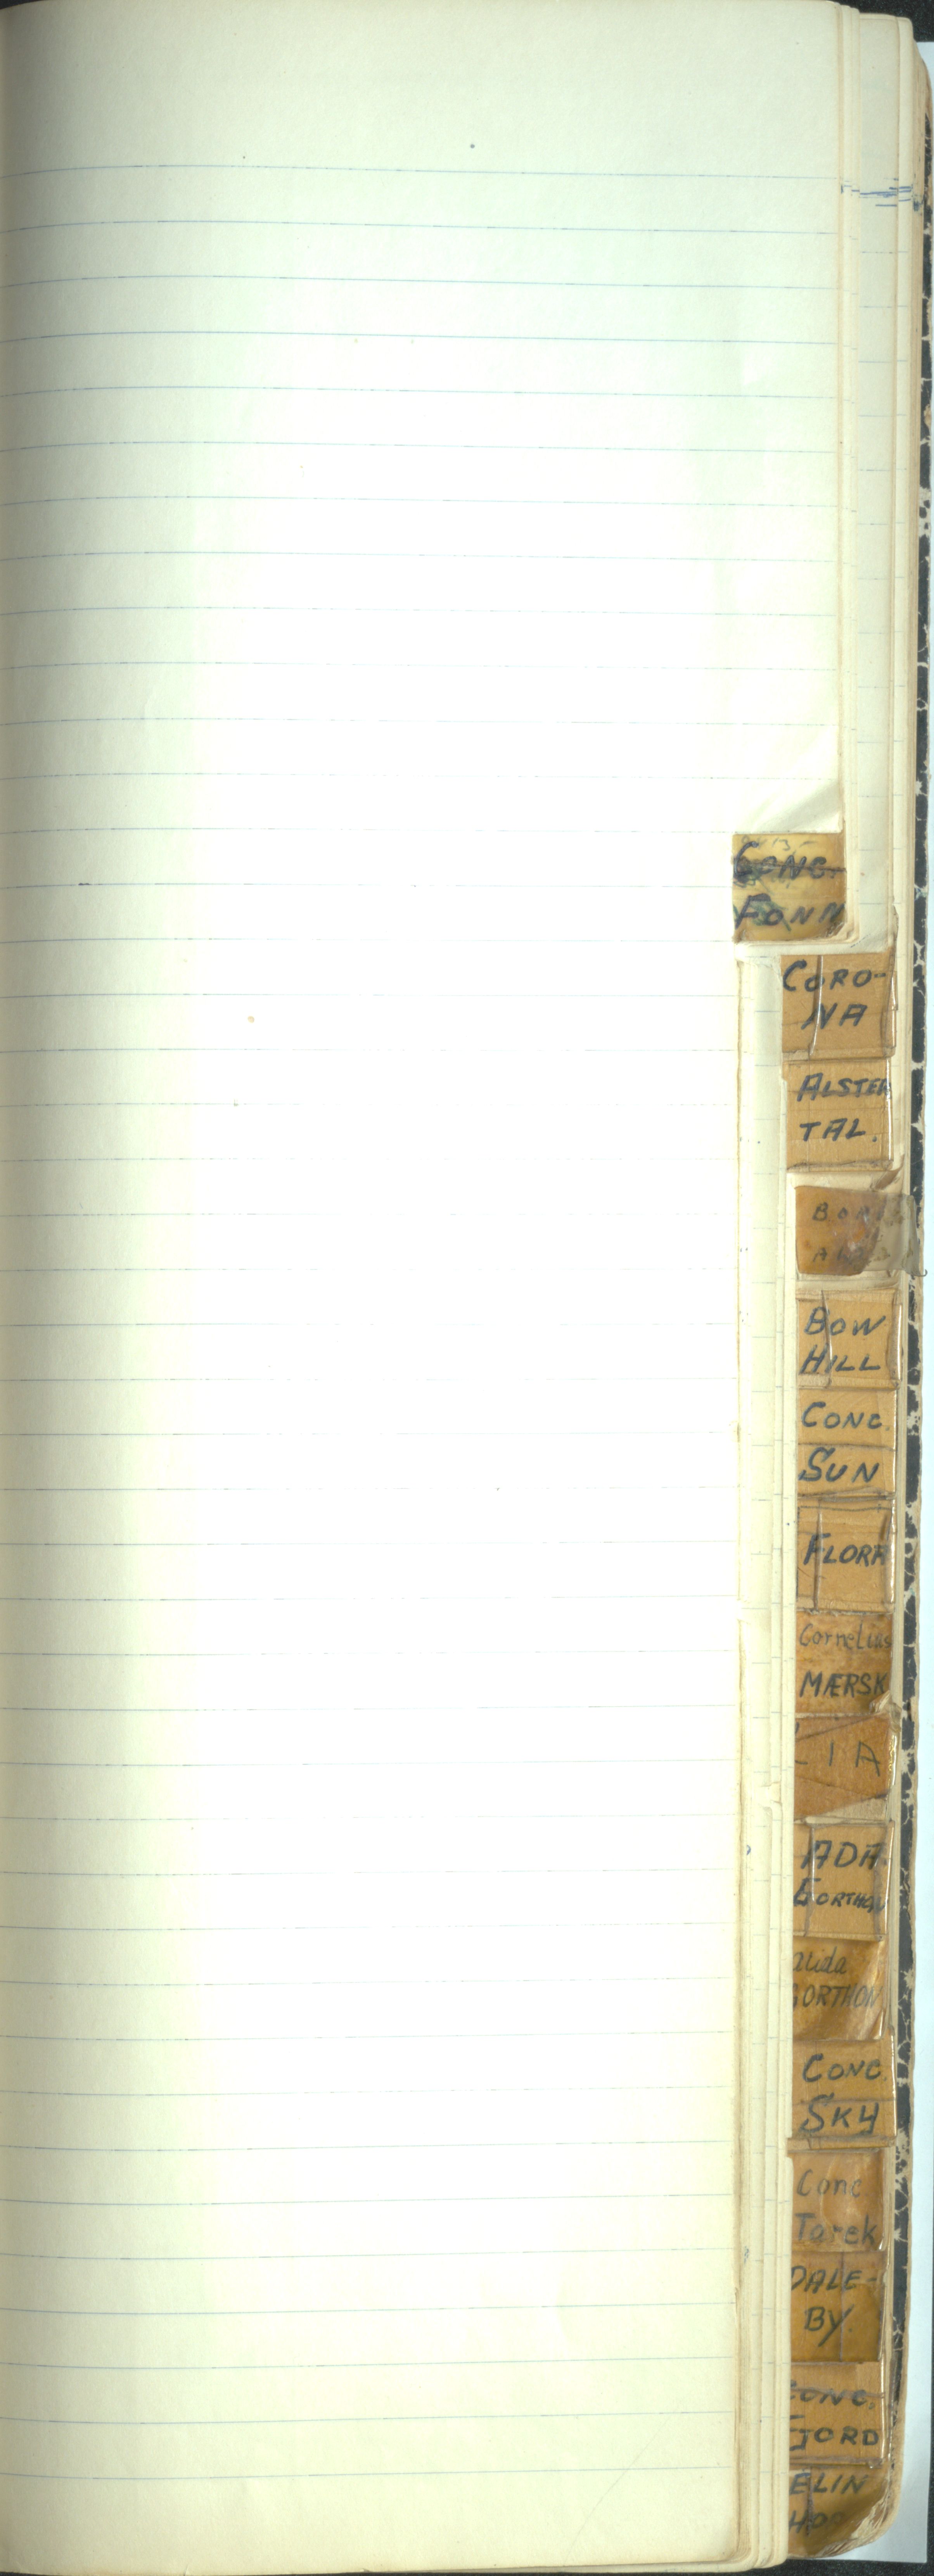 CONC.
FONN
CORO-
NA
ALSTER
TAL.
BOW
HILL
CONC.
SUN
FLORA
Cornelius
MÆRSK
LIA
ADA
GORTHON
alida
GORTHON
CONC
SKY
Conc
Tarek
DALE-
BY.
CONC.
FJORD
ELIN